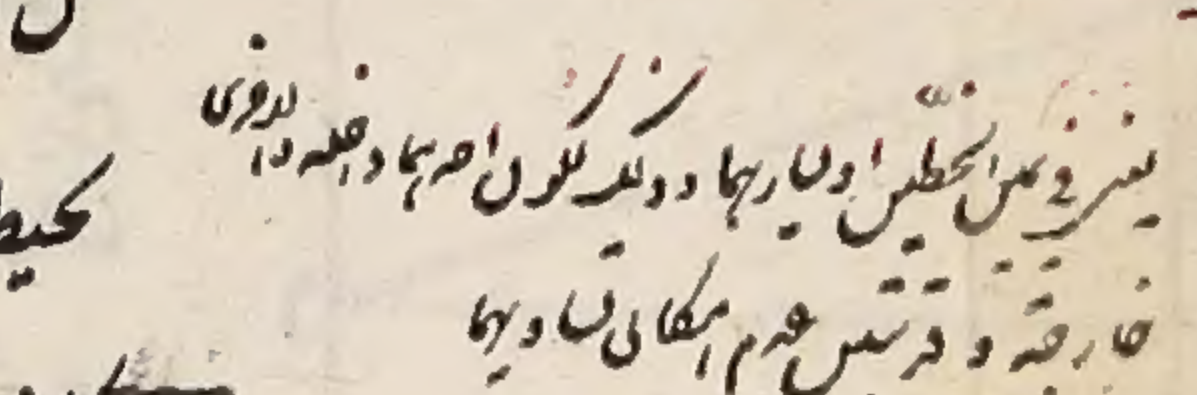 يمين الخطين او يسارهما وذلك لكون احدهما داخلة والاخرى
خارجة وقد تبين عدم امكان تساويهما
محيط